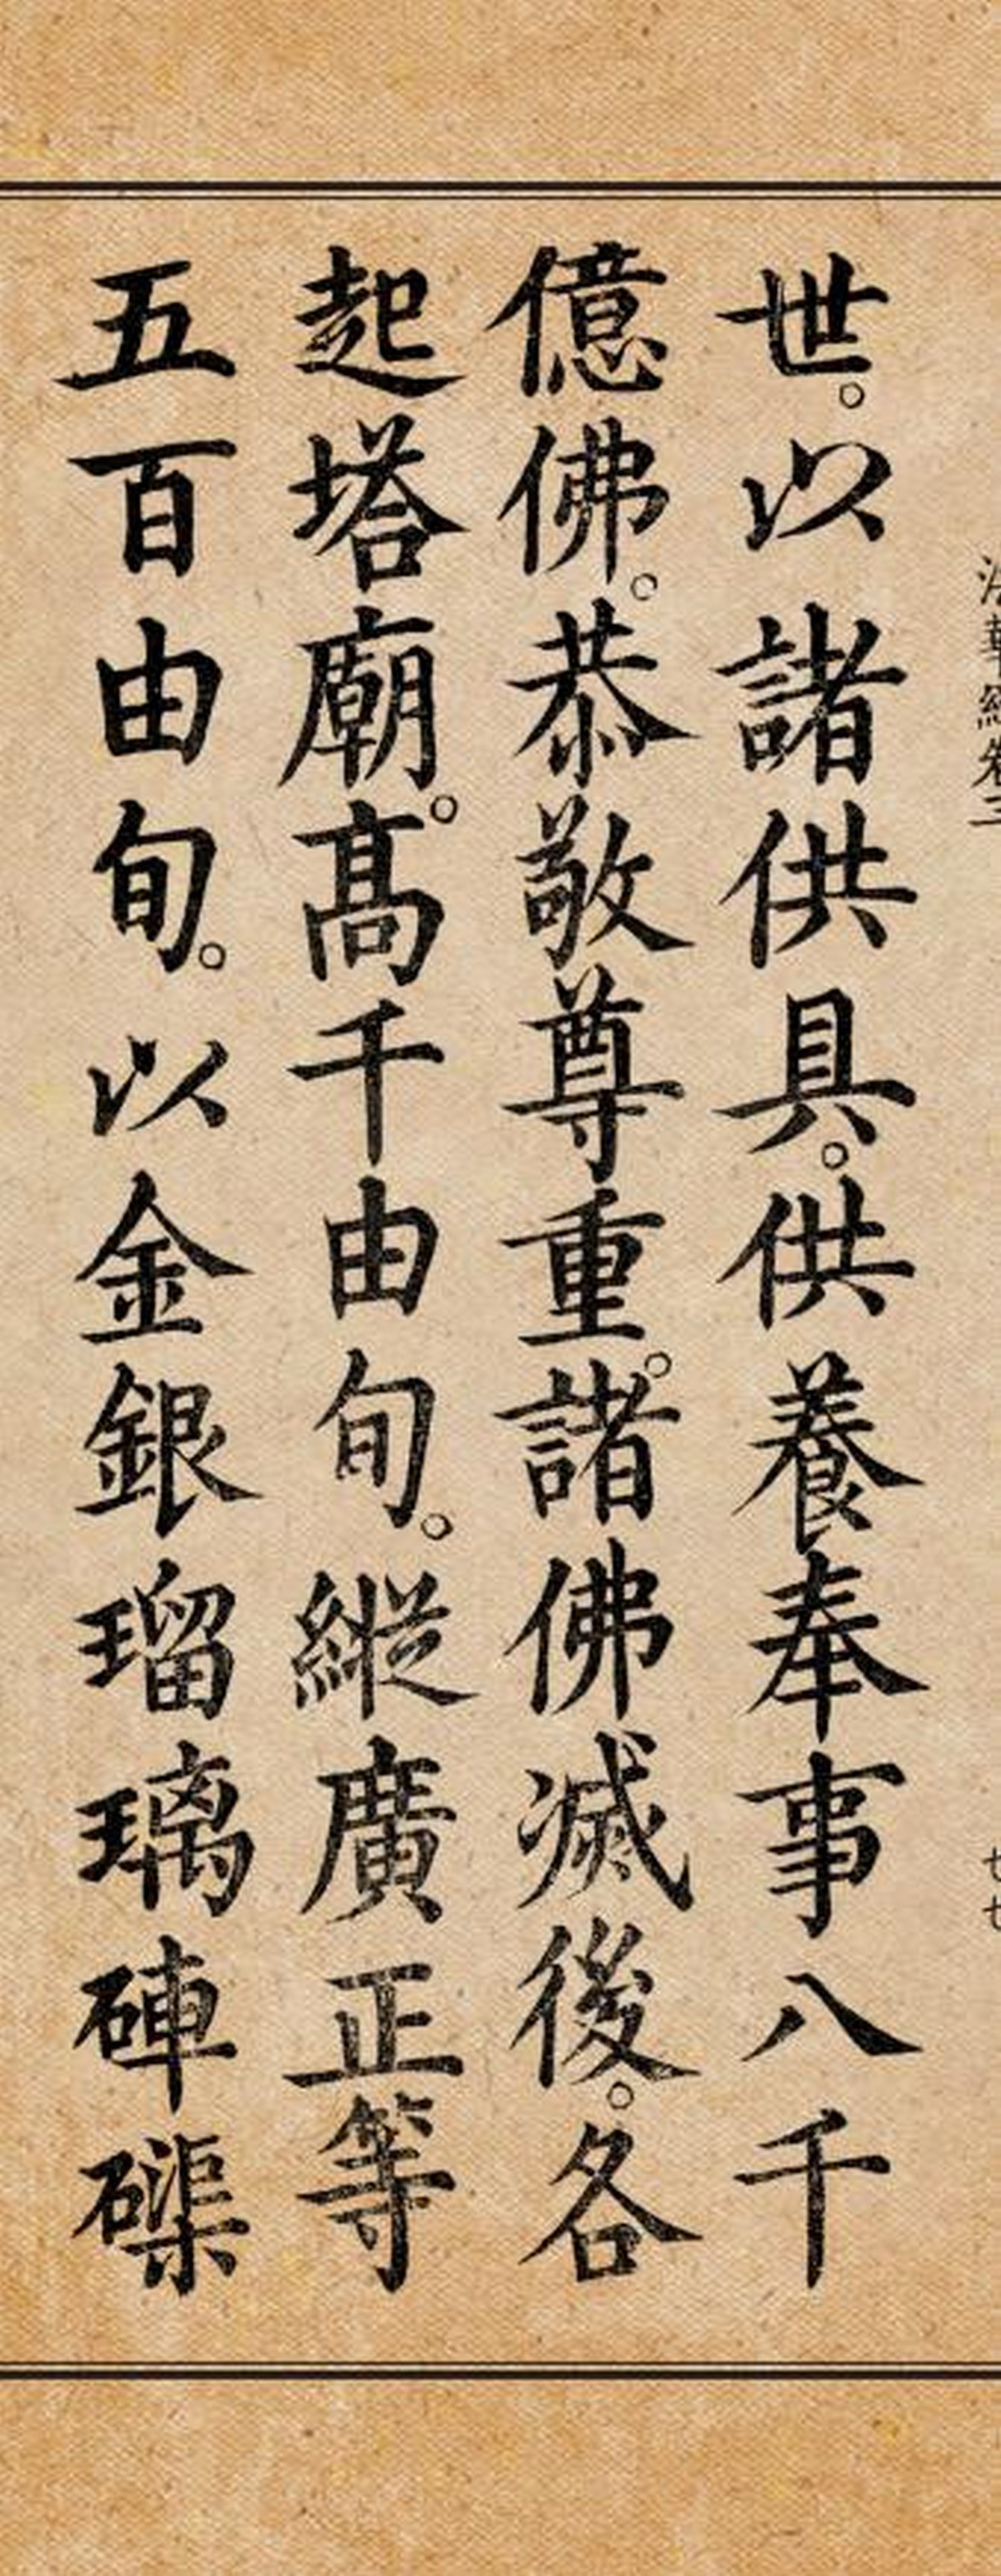 法華經卷三 七七
世。以諸供具。供養奉事八千
億佛。恭敬尊重。諸佛滅後。各
起塔廟。高千由旬。縱廣正等
五百由旬。以金銀瑠璃硨磲